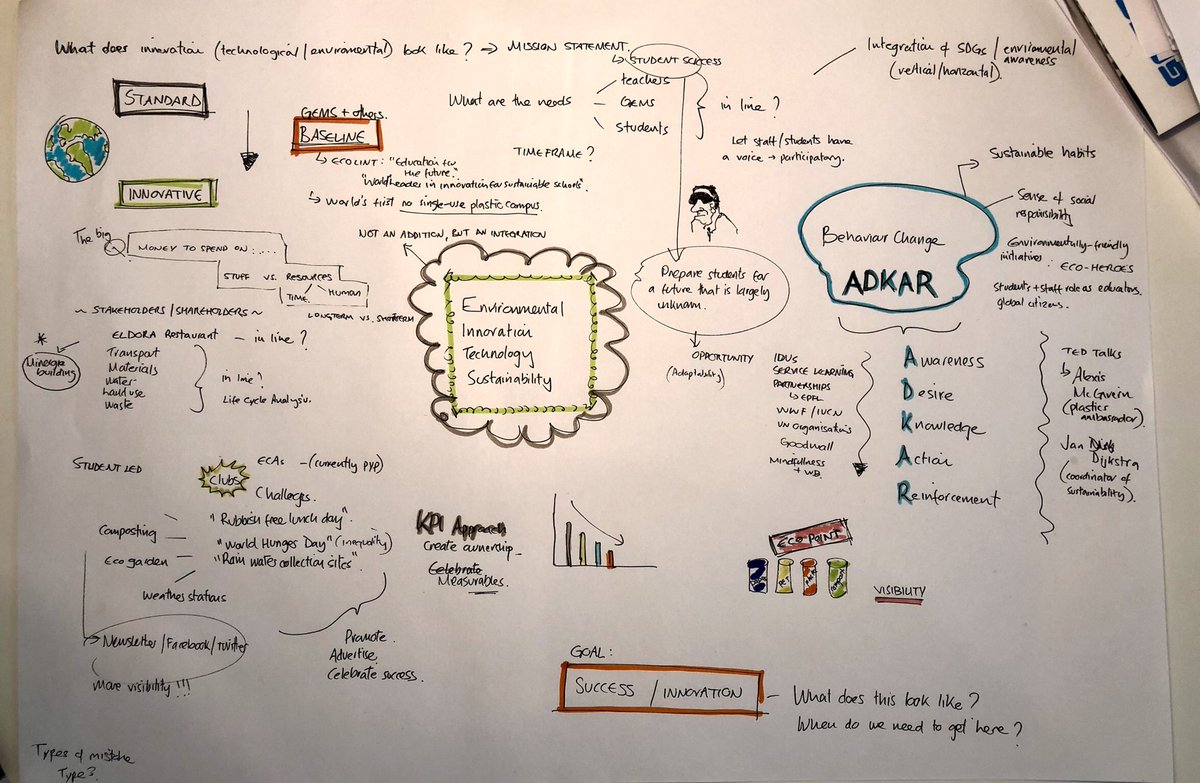 What does innovation (technological/enviromental) look like? → MISSION STATEMENT.
↳ STUDENT SUCCESS
Integration of SDGs / envirionmental
awareness
(vertical/horizontal).
STANDARD
INNOVATIVE
GEMS + others.
BASELINE
↳ ECOLINT: "Education for
the future."
"World leader in innovation for sustainable schools".
↳ World's first no single-use plastic campus.
What are the needs
teachers
GEMS
students
in line?
TIMEFRAME?
Let staff/students have
a voice → participatory.
Sustainable habits
Sense of social
responsibility
Environmentally-friendly
initiatives
: ECO-HEROES
Students + staff role as educators,
global citizens.
Behaviour Change
ADKAR
The big
Q
MONEY TO SPEND ON:.....
STUFF vs. RESOURCES
TIME
HUMAN
LONGTERM VS. SHORTTERM
NOT AN ADDITION, BUT AN INTEGRATION
Environmental
Innovation
Technology
Sustainability
Prepare students for
a future that is largely
unknown.
OPPORTUNITY
(Adaptability)
~ STAKEHOLDERS/SHAREHOLDERS ~
ELDORA RESTAURANT – in line?
*
building
Transport
Materials
Water
Land use
Waste
in line?
Life Cycle Analysis.
IDUs
SERVICE LEARNING
PARTNERSHIPS
↳ EPFL
WWF / IUCN
UN ORGANISATIONS
Goodwall
Mindfulness
+ WB.
Awareness
Desire
Knowledge
Action
Reinforcement
TED TALKS
↳ Alexis
McGivern
(plastics
ambassador)
Jan
Dijkstra
(coordinator of
sustainability)
STUDENT LED
Clubs
ECAs – (currently PYP)
Challenges.
"Rubbish free lunch day".
"World Hunger Day" (inequality)
"Rain water collection sites".
Composting
Eco garden
Weather stations
→ Newsletter/Facebook/Twitter
More visibility!!!
Promote.
Advertise,
Celebrate success.
KPI Approach
Create ownership
Celebrate
Measurables.
ECO POINT
PET
VISIBILITY
GOAL:
SUCCESS / INNOVATION
What does this look like?
When do we need to get here?
Types of mistake
Type?